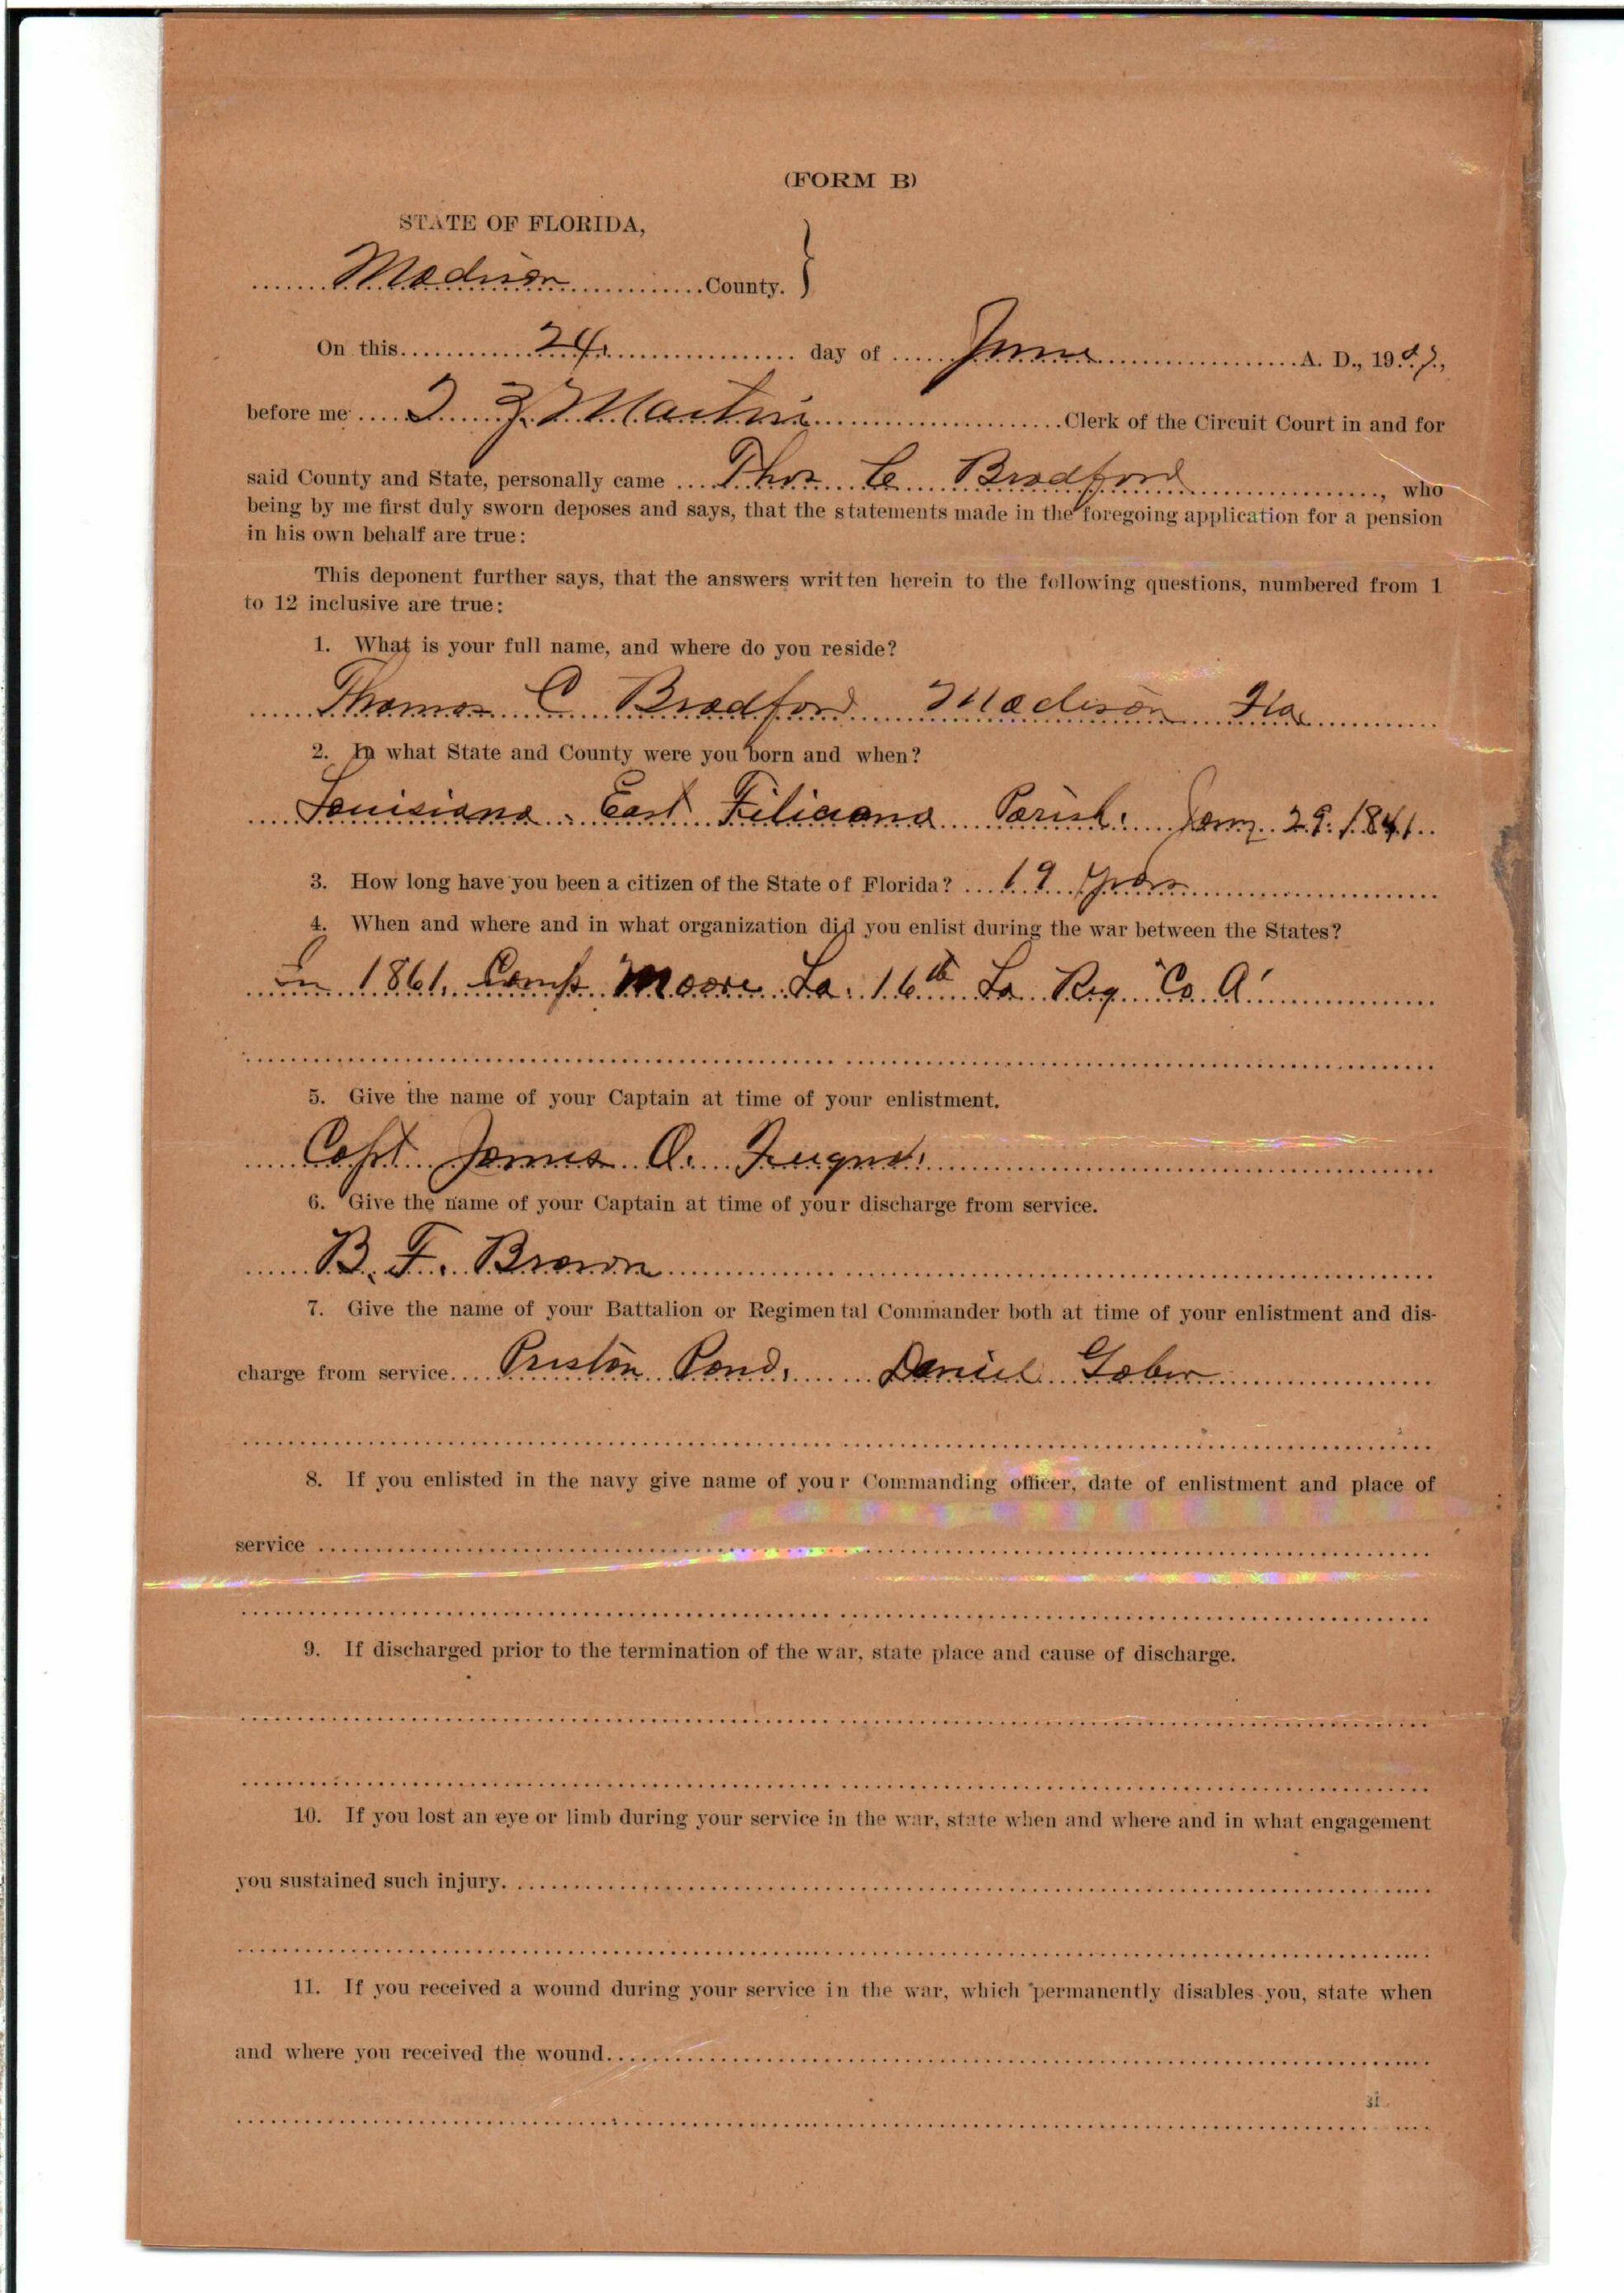 (FORM B)
STATE OF FLORIDA,
Madison County.
On this 24. day of June A. D., 1907,
before me Martin Clerk of the Circuit Court in and for
said County and State, personally came Thos C Bradford, who
being by me first duly sworn deposes and says, that the statements made in the foregoing application for a pension
in his own behalf are true:
This deponent further says, that the answers written herein to the following questions, numbered from 1
to 12 inclusive are true:
1. What is your full name, and where do you reside?
Thomas C Bradford Madison Fla
2. In what State and County were you born and when?
Louisiana. East Filiciana Parish. Jany 29. 1841.
3. How long have you been a citizen of the State of Florida? 19 years
4. When and where and in what organization did you enlist during the war between the States?
In 1861. Camp Moore La. 16th La Reg "Co A"
5. Give the name of your Captain at time of your enlistment.
Capt James O.
6. Give the name of your Captain at time of your discharge from service.
B. F. Brown
7. Give the name of your Battalion or Regimental Commander both at time of your enlistment and dis-
charge from service. Preston Pond, Daniel Gober
8. If you enlisted in the navy give name of your Commanding officer, date of enlistment and place of
service
9. If discharged prior to the termination of the war, state place and cause of discharge.
10. If you lost an eye or limb during your service in the war, state when and where and in what engagement
you sustained such injury.
11. If you received a wound during your service in the war, which permanently disables you, state when
and where you received the wound.